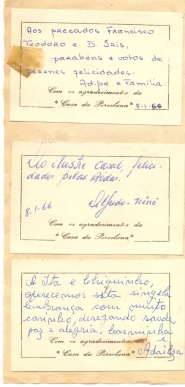 Aos prezados Francisco
Teodoro e D. Isis,
parabens e votos de
perenes felicidades.
Adipe e Familia
Com os agradecimentos da
"Casa da Porcelana" 8-1-66
Ao ilustre Casal, felici-
dades pelas Bodas.
8-1-66
Com os agradecimentos da
"Casa da Porcelana"
A Ita e Chiquinho,
oferecemos esta singela
lembrança com muito
carinho, desejando saude,
paz e alegria.
Com os agradecimentos da
"Casa da Porcelana"